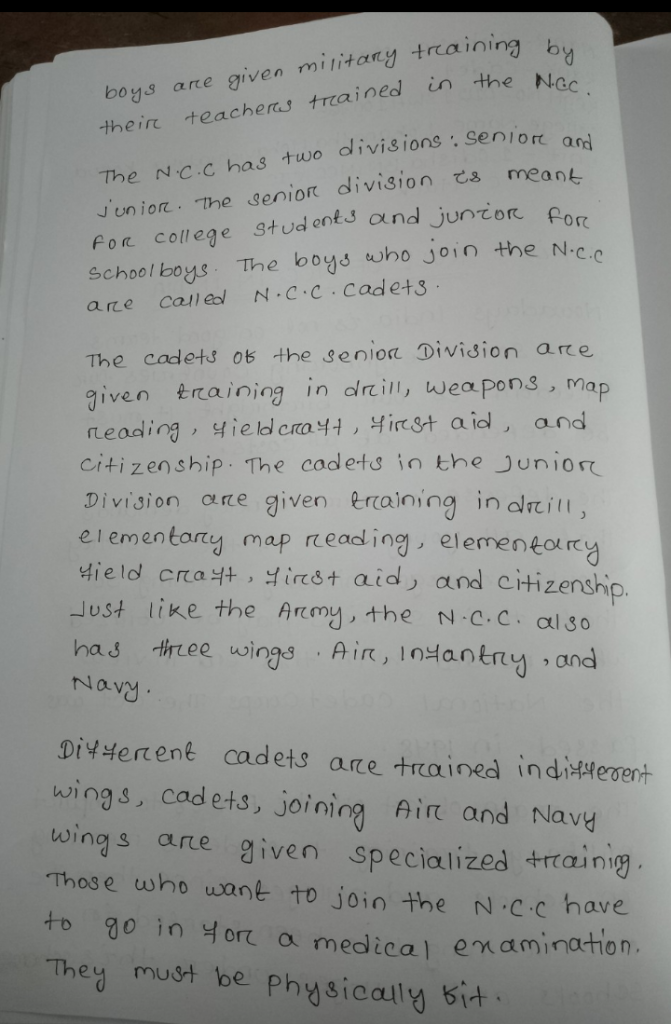 boys are given military training by
their teachers trained in the N.C.C.
The N.C.C has two divisions : senior and
junior. The senior division is meant
for college students and junior for
schoolboys. The boys who join the N.C.C
are called N.C.C. cadets.
The cadets of the senior Division are
given training in drill, weapons, map
reading, fieldcraft, first aid, and
citizenship. The cadets in the Junior
Division are given training in drill,
elementary map reading, elementary
field craft, first aid, and citizenship.
Just like the Army, the N.C.C. also
has three wings . Air, Infantry, and
Navy.
Different cadets are trained indifferent
wings, cadets, joining Air and Navy
wings are given specialized trainig.
Those who want to join the N.C.C have
to go in for a medical examination.
They must be physically fit.